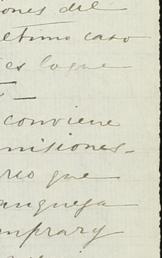 ones del
ultimo caso
es loque
conviene
misiones-
rio que
aunque ya
mprar y